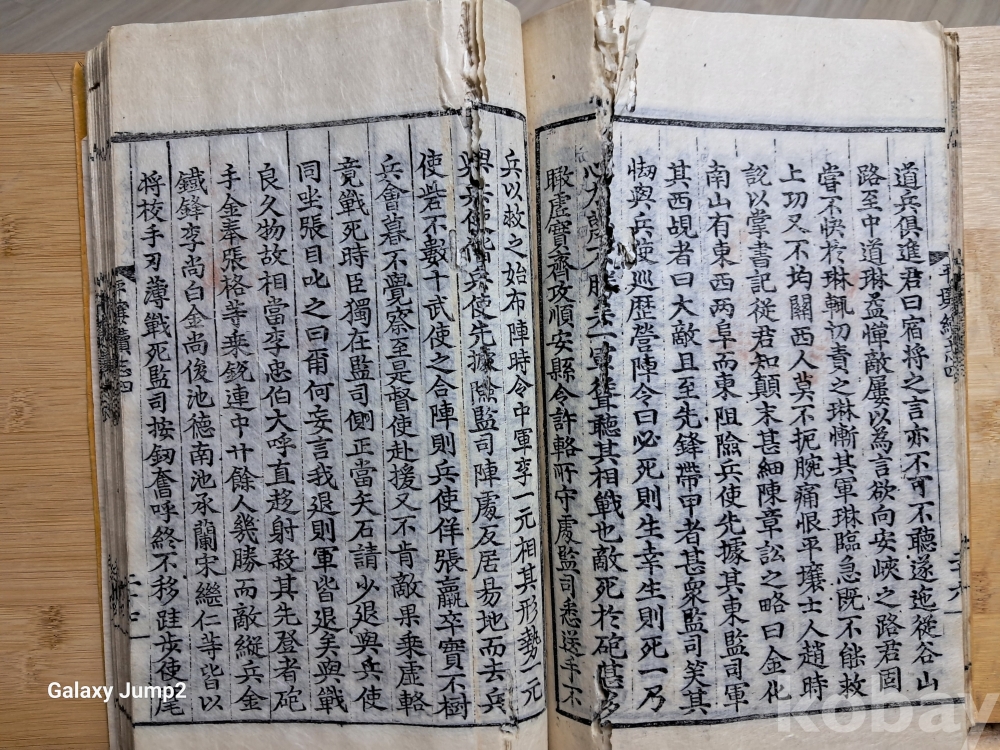 道兵俱進君曰宿將之言亦不可不聽遂迤從谷山
路至中道琳孟憚敵屢以為言欲向安峽之路君固
甞不快於琳輒切責之琳慚其軍琳臨急既不能救
上功又不均關西人莫不扼腕痛恨平壤士人趙時
說以掌書記從君知顛末甚細陳章訟之略曰金化
南山有東西兩阜而東阻險兵使先據其東監司軍
其西覘者曰大敵且至先鋒帶甲者甚衆監司笑其
㤼與兵使巡歷營陣令曰必死則生幸生則死一乃
心力
聽其相戰也敵死於砲
瞰虛實齊攻順安縣令許輅所守處監司悉送手下
兵以救之始布陣時令中軍李一元相其形勢一元
與兵使
兵使先據險監司陣處反居易地而去兵
使砦不數十武使之合陣則兵使佯張羸卒實不樹
兵會暮不覺察至是督使赴援又不肯敵果乘虛輅
竟戰死時臣獨在監司側正當矢石請少退與兵使
同坐張目叱之曰爾何妄言我退則軍皆退矣與戰
良久物故相當李忠伯大呼直趍射殺其先登者砲
手金奉張格等乘銃連中廿餘人幾勝而敵縱兵金
鐵鋒李尚白金尚俊池德南池承蘭宋繼仁等皆以
將校手刃薄戰死監司按釼奮呼終不移跬步使尾
平壤續志四
Galaxy Jump2
kobay